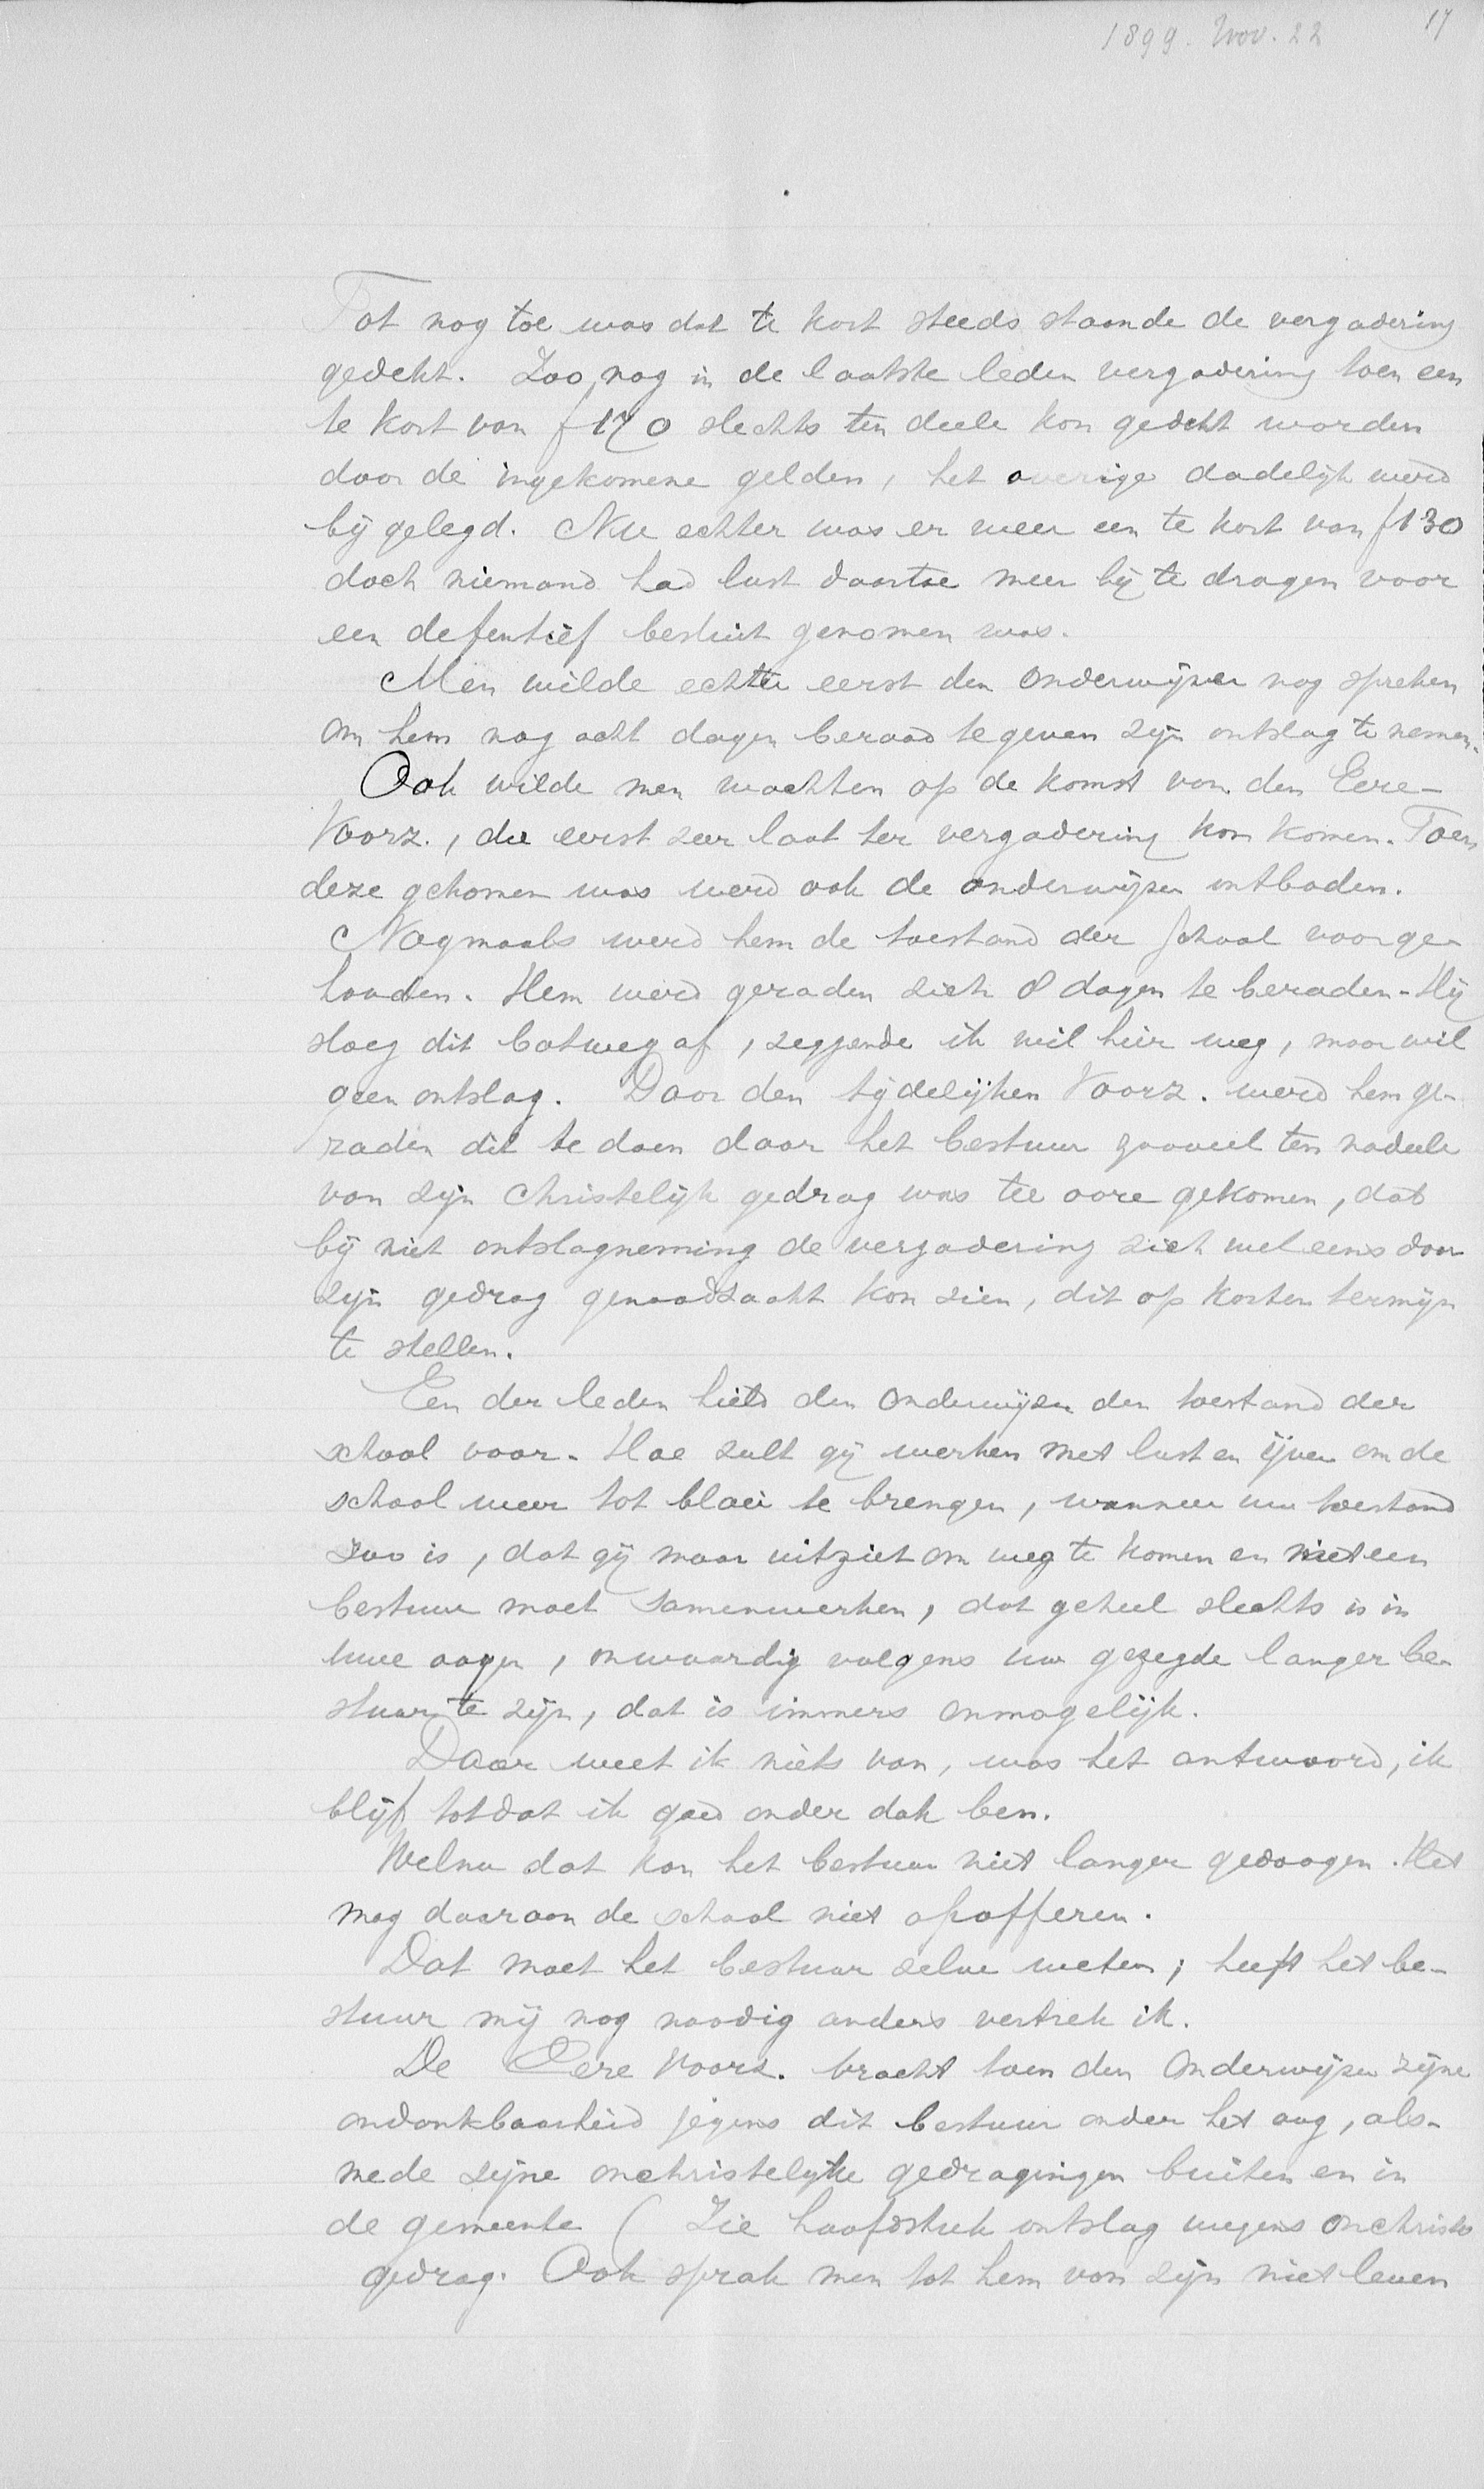 1899. Nov. 22
17
Tot nog toe was dat te kort steeds staande de vergadering
gedekt. Zoo nog in de laatste leden vergadering toen een
te kort van f 170 slechts ten deele kon gedekt worden
door de ingekomene gelden, het overige dadelijk werd
bij gelegd. Nu echter was er weer een te kort van f 130
doch niemand had lust daartoe meer bij te dragen voor
een defentief besluit genomen was.
Men wilde echter eerst den onderwijzer nog spreken
om hem nog acht dagen beraad te geven zijn ontslag te nemen.
Ook wilde men wachten op de komst van den Eere-
Voorz., die eerst zeer laat ter vergadering kon komen. Toen
deze gekomen was werd ook de onderwijzer ontboden.
Nogmaals werd hem de toestand der school voorge-
houden. Hem werd geraden zich 8 dagen te beraden. Hij
sloeg dit botweg af, zeggende ik wil hier weg, maar wil
geen ontslag. Door den tijdelijken Voorz. werd hem ge-
raden dit te doen daar het bestuur zooveel ten nadeele
van zijn Christelijk gedrag was ter oore gekomen, dat
bij niet ontslagneming de vergadering zich wel eens door
zijn gedrag genoodzaakt kon zien, dit op korten termijn
te stellen.
Een der leden hield den onderwijzer den toestand der
school voor. Hoe zult gij werken met lust en ijver om de
school weer tot bloei te brengen, wanneer uw toestand
zoo is, dat gij maar uitziet om weg te komen en met een
bestuur moet samenwerken, dat geheel slechts is in
uwe oogen, onwaardig volgens uw gezegde langer be-
stuur te zijn, dat is immers onmogelijk.
Daar weet ik niets van, was het antwoord, ik
blijf totdat ik goed onder dak ben.
Welnu dat kon het bestuur niet langer gedoogen. Het
mag daaraan de school niet opofferen.
Dat moet het bestuur zelve weten; heeft het be-
stuur mij nog noodig anders vertrek ik.
De Eere Voorz. bracht toen den Onderwijzer zijne
ondankbaarheid jegens dit bestuur onder het oog, als-
mede zijne onchristelijke gedragingen buiten en in
de gemeente (Zie hoofdstuk ontslag wegens onchristo
gedrag. Ook sprak men tot hem van zijn niet leven